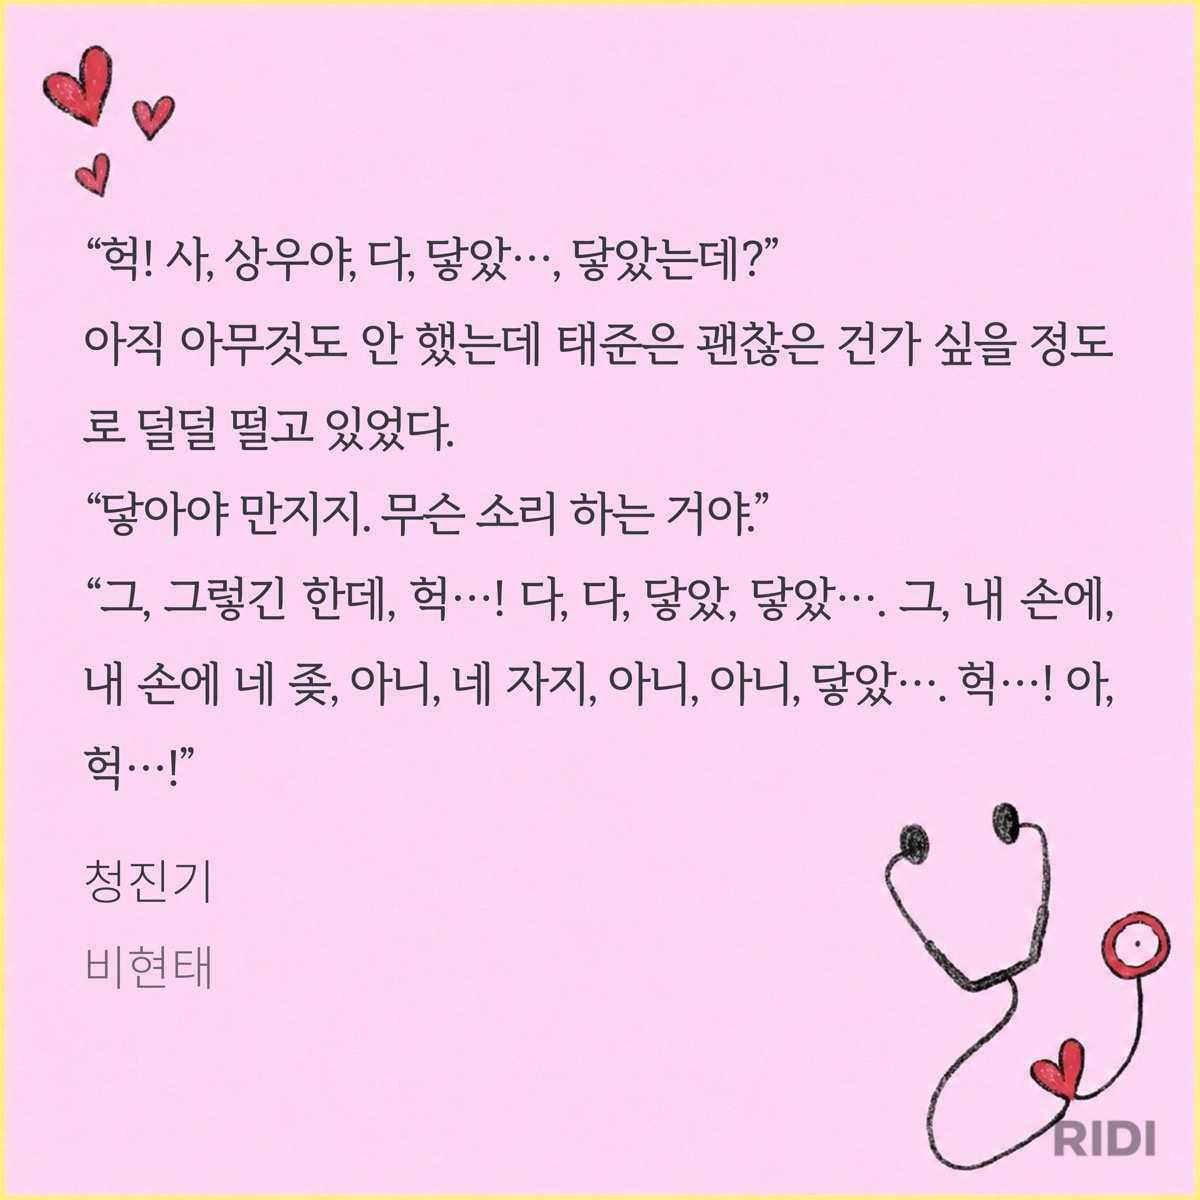 “헉! 사, 상우야, 다, 닿았…, 닿았는데?”
아직 아무것도 안 했는데 태준은 괜찮은 건가 싶을 정도
로 덜덜 떨고 있었다.
“닿아야 만지지. 무슨 소리 하는 거야.”
“그, 그렇긴 한데, 헉…! 다, 다, 닿았, 닿았…. 그, 내 손에,
내 손에 네 좆, 아니, 네 자지, 아니, 아니, 닿았…. 헉…! 아,
헉…!”
청진기
비현태
RIDI